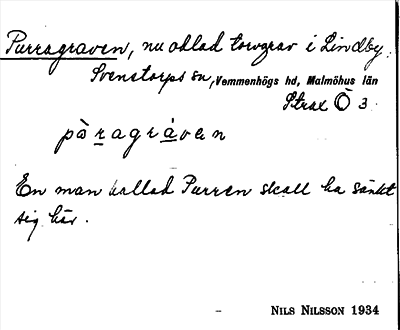 Purragraven, nu odlad torvgrav i Lindby.
Svenstorps sn, Vemmenhögs hd, Malmöhus län
Strax Ö 3.
pàragráven
En man kallad Purren skall ha sänkt
sig här.
NILS NILSSON 1934